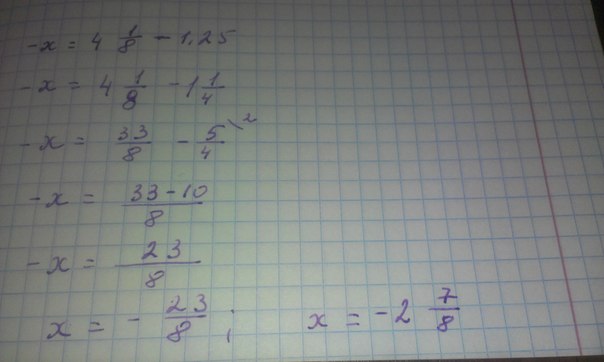 -x = 4 1/8 - 1,25
-x = 4 1/8 - 1 1/4
-x = 33/8 - 5/4 \2
-x = (33-10)/8
-x = 23/8
x = - 23/8 ; x = -2 7/8